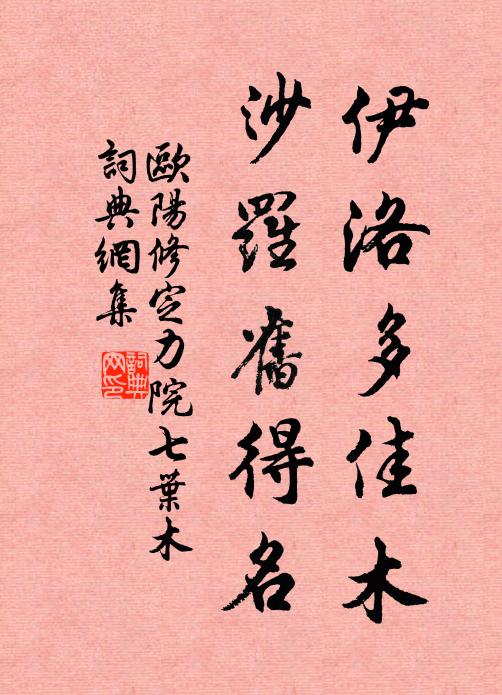 伊洛多佳木
沙羅舊得名
歐陽修定力院七葉木
詞典網集
詞典網印